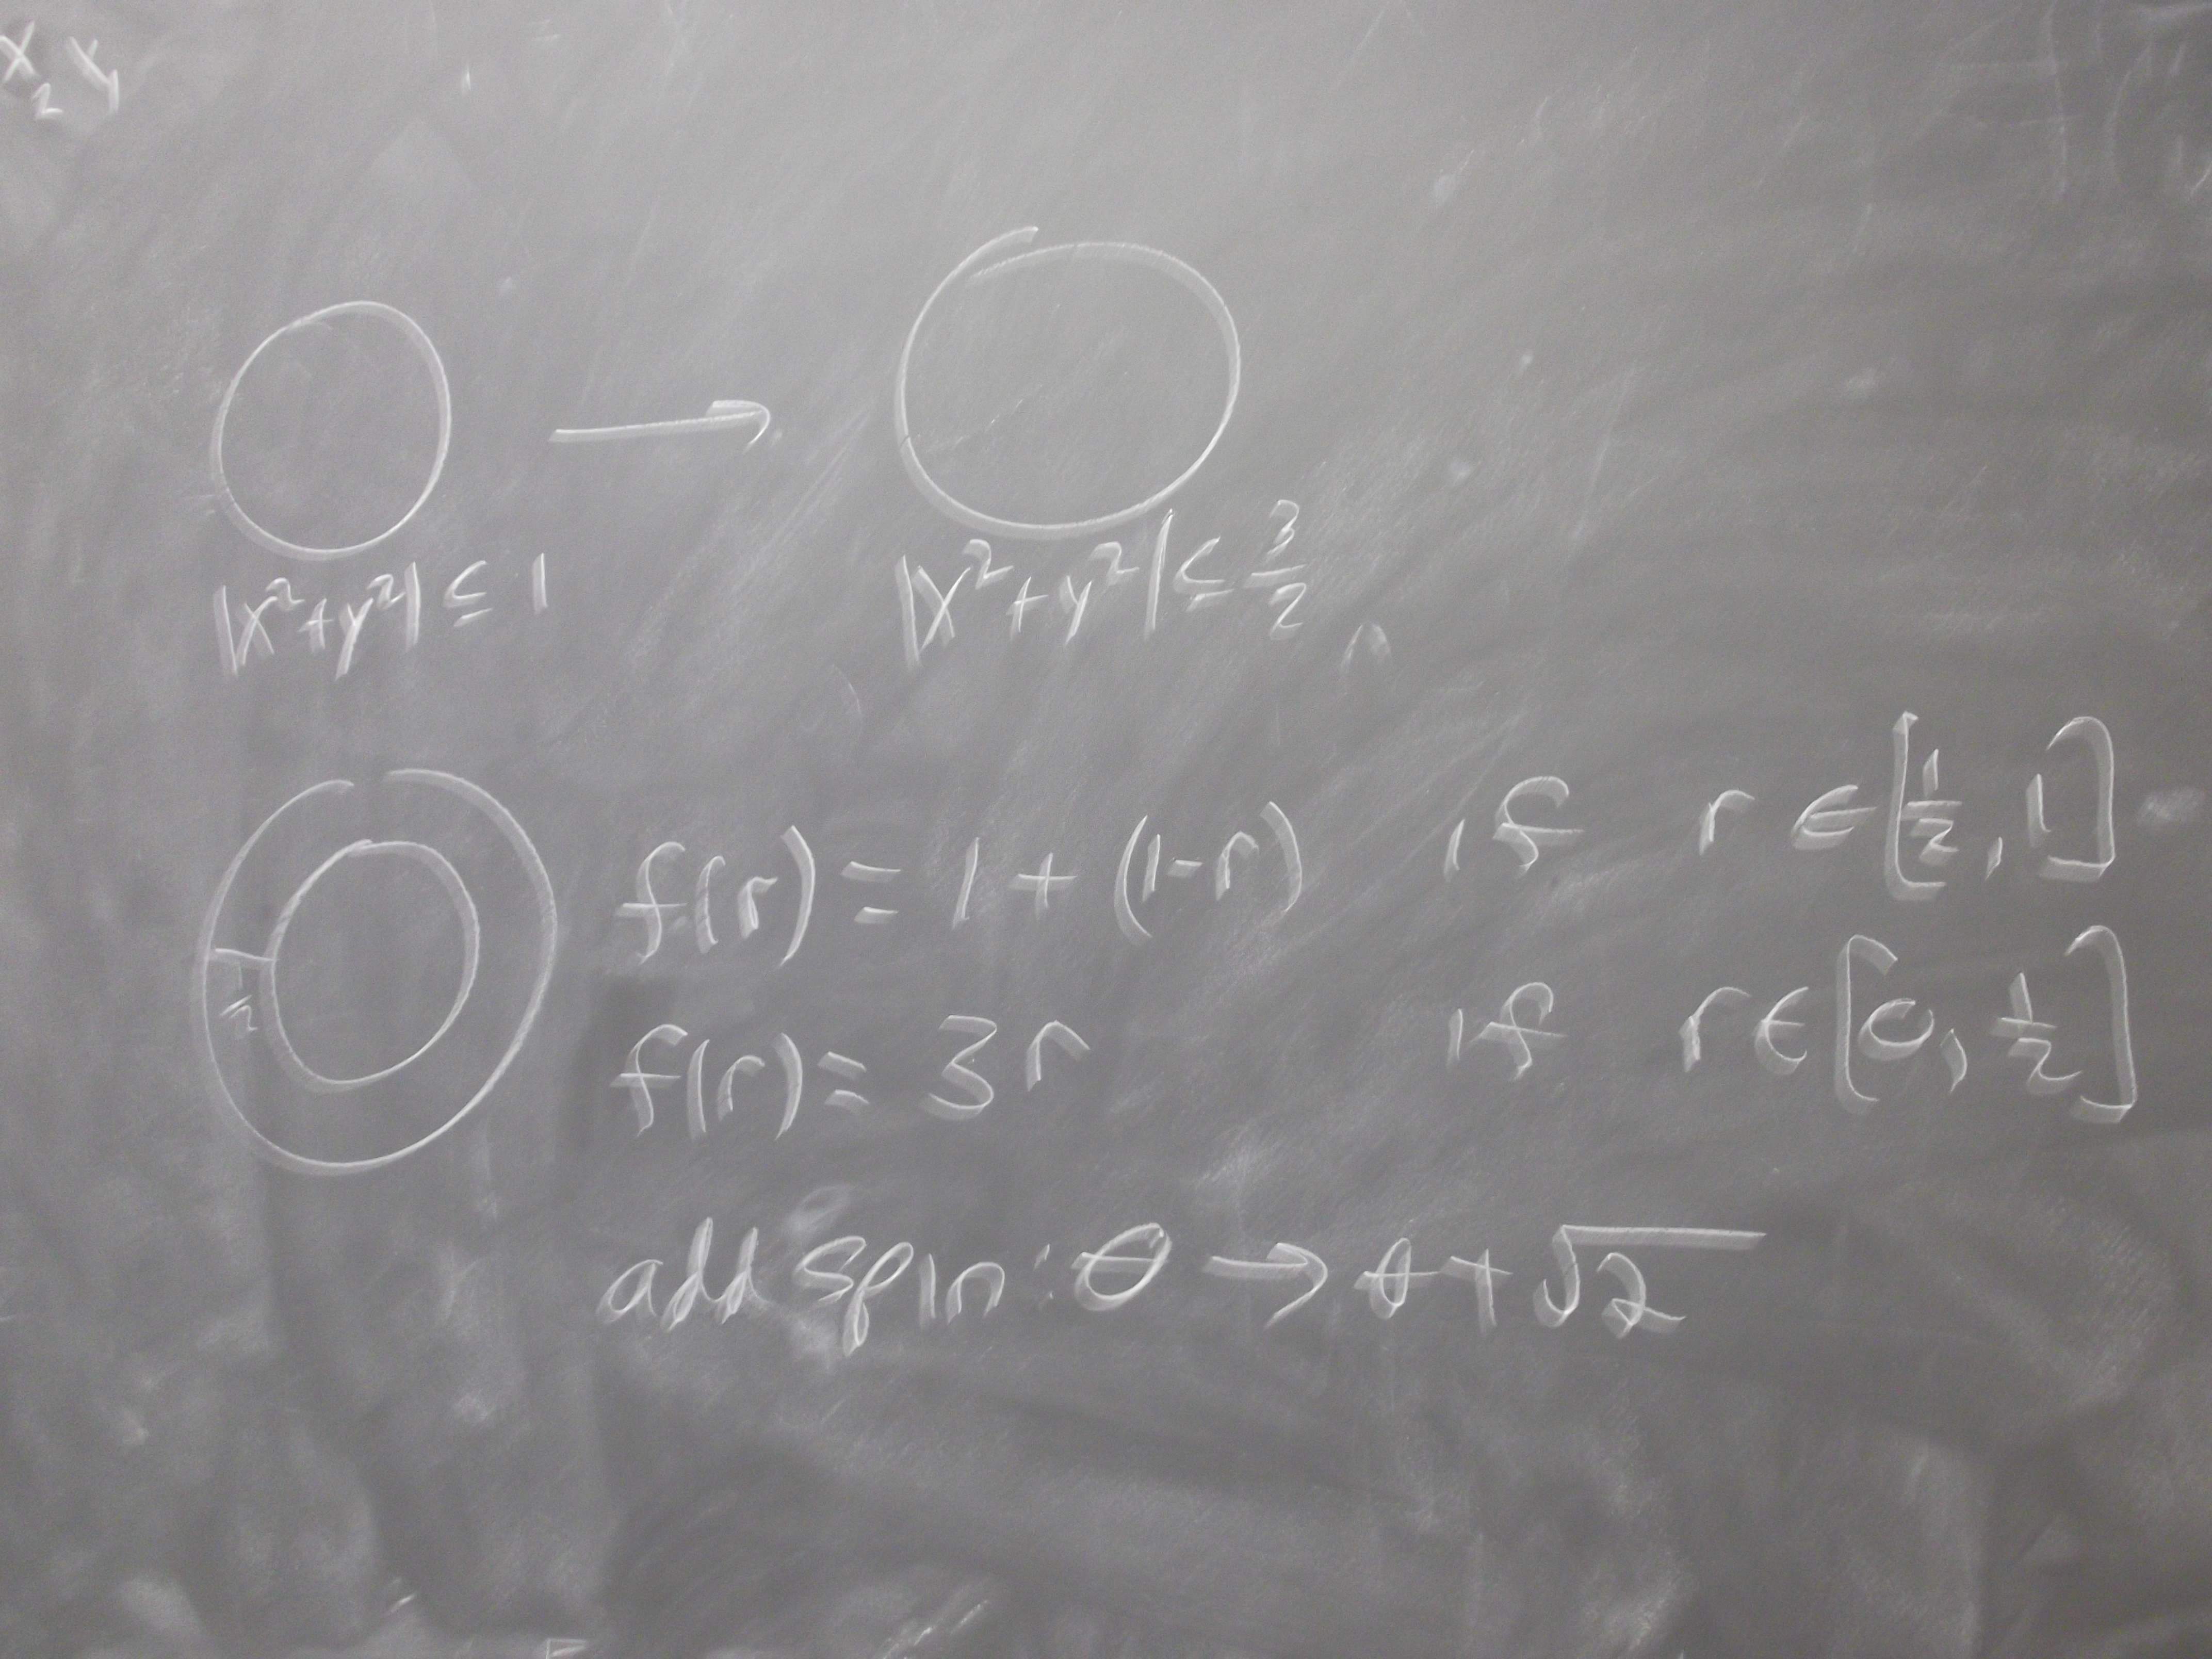 x₂ y
|x²+y²| ≤ 1
|x²+y²| ≤ 3/2
1/2
f(r) = 1 + (1-r) if r ∈ [1/2, 1]
f(r) = 3r if r ∈ [0, 1/2]
add spin: θ → θ + √2